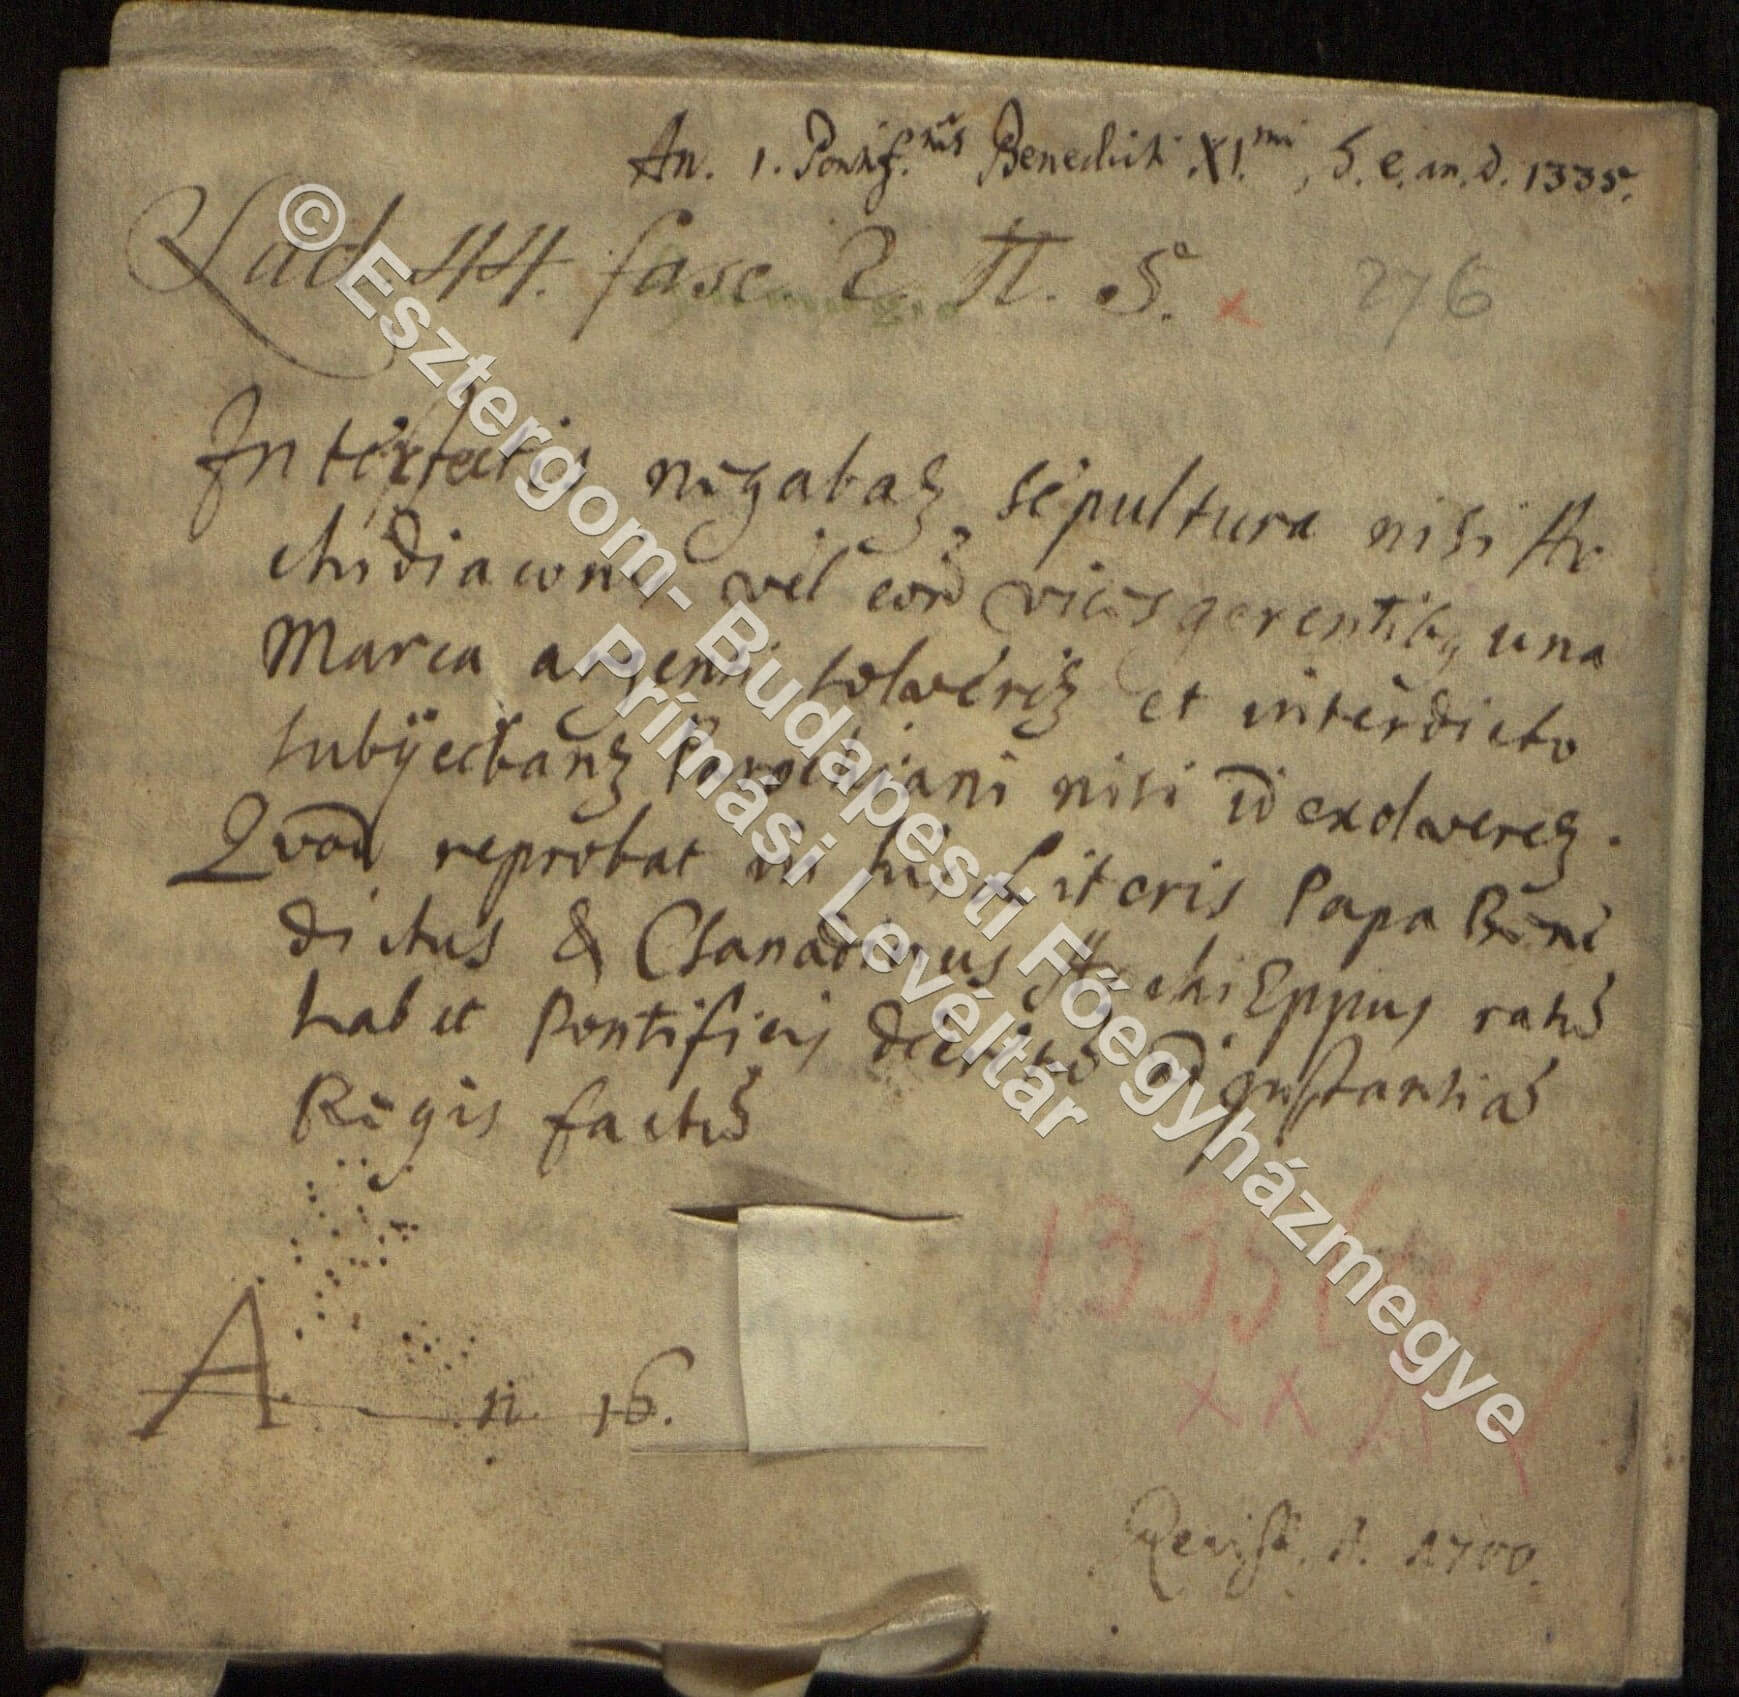 An. 1. Pontif.nis Benedicti XI.mi, S. e. an. D. 1335.
Lad. HH. fasc. 2. N. 5. x 276
Interfectis negabaꝫ sepultura nisi Ar
chidiaconis vel eorū vices gerentibꝫ una
Marca argenti solveriꝫ et interdicto
subÿcebanꝫ Parochiani nisi id exolvereꝫ.
Qvod reprobat in his literis Papa Bene
dictus & Csanadinus Archi Eppus ratū
habet Pontificis decretū ad instantiā
Regis factū
1335
x x
A n 16.
Revis. A. 1700.
© Esztergom- Budapesti Főegyházmegye
Prímási Levéltár